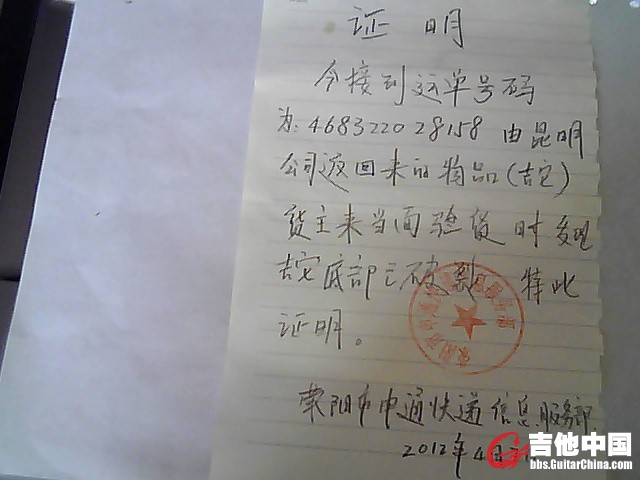 证明
今接到运单号码
为:468322028158 由昆明
公司返回来的物品(吉它)
货主来当面验货时发现
吉它底部已破裂 特此
证明。
荥阳市中通快递信息服务部
2012年4月
吉他中国
bbs.GuitarChina.com